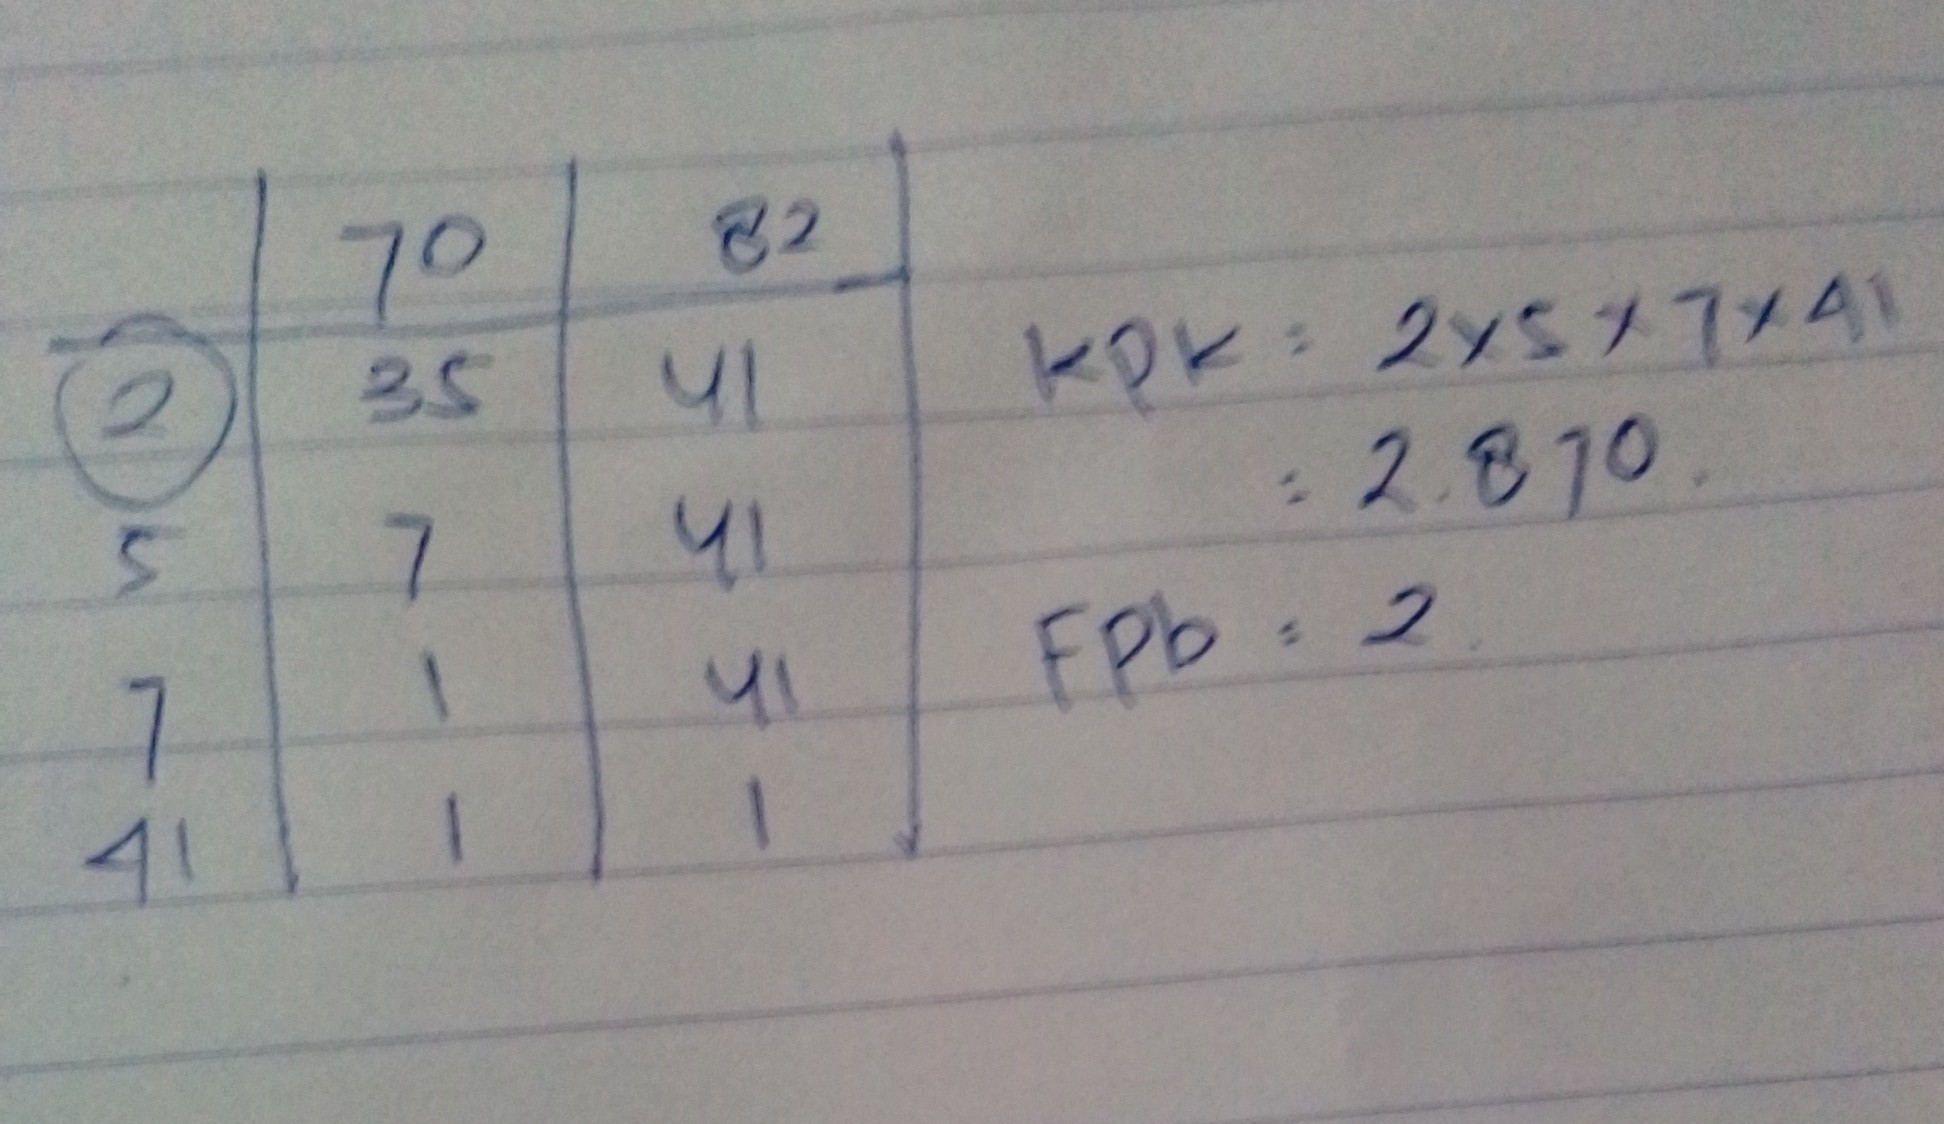 70 82
2 35 41
5 7 41
7 1 41
41 1 1
KPK = 2x5x7x41
= 2.870.
FPb = 2.